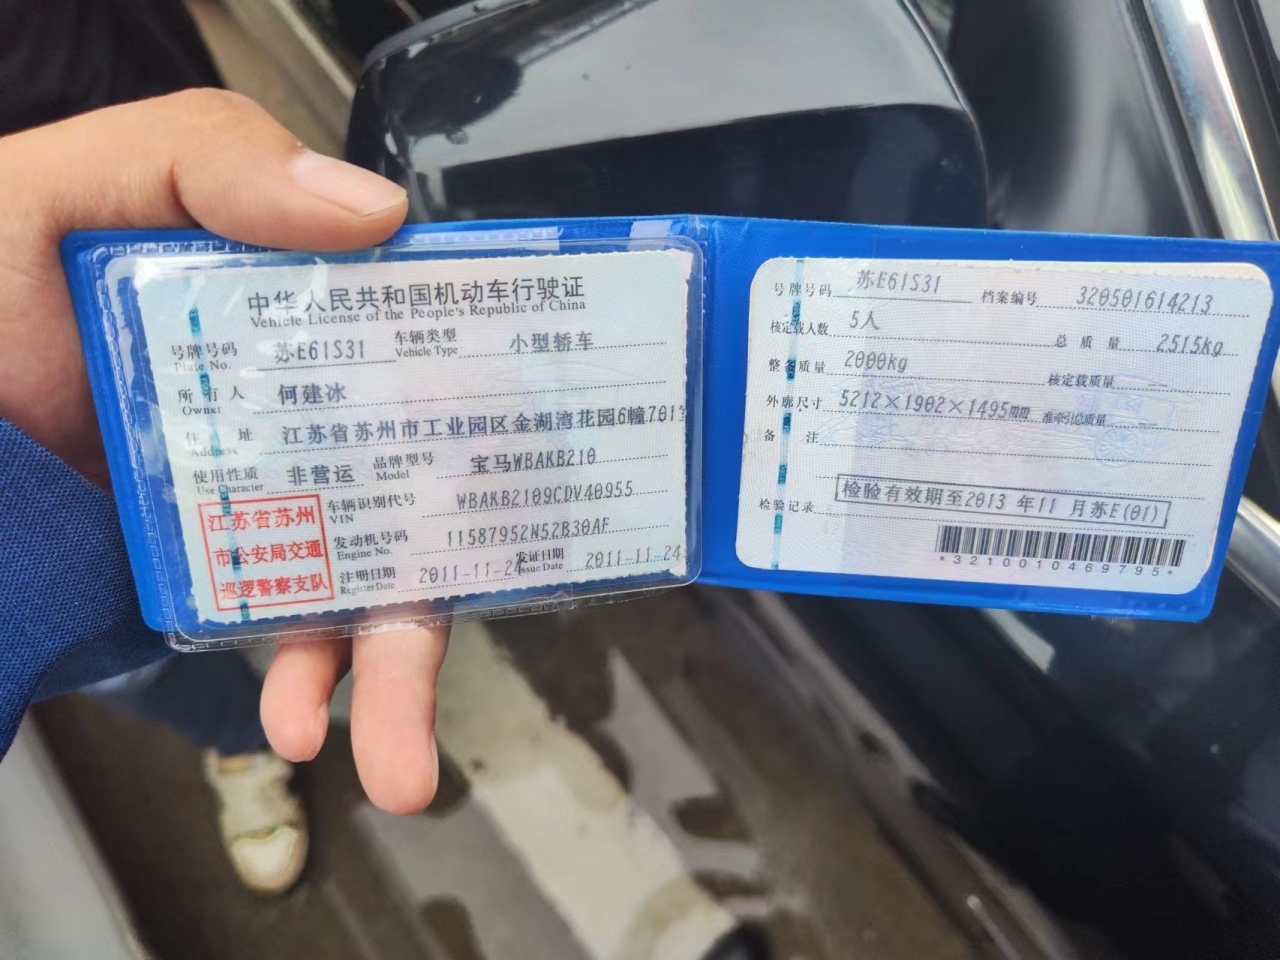 中华人民共和国机动车行驶证
Vehicle License of the People's Republic of China
号牌号码 苏E61S31 车辆类型 小型轿车
Plate No. Vehicle Type
所有人 何建冰
Owner
住址 江苏省苏州市工业园区金湖湾花园6幢701
Address
使用性质 非营运 品牌型号 宝马WBAKB210
Use Character Model
车辆识别代号 WBAKB2109CDV40955
VIN
发动机号码 11587952N52B30AF
Engine No.
注册日期 2011-11-24 发证日期 2011-11-24
Register Date Issue Date
江苏省苏州
市公安局交通
巡逻警察支队
号牌号码 苏E61S31 档案编号 320501614213
核定载人数 5人 总质量 2515kg
整备质量 2000kg 核定载质量 --
外廓尺寸 5212×1902×1495mm 准牵引总质量 --
备注
检验记录 检验有效期至2013年11月苏E(01)
*3210010469795*